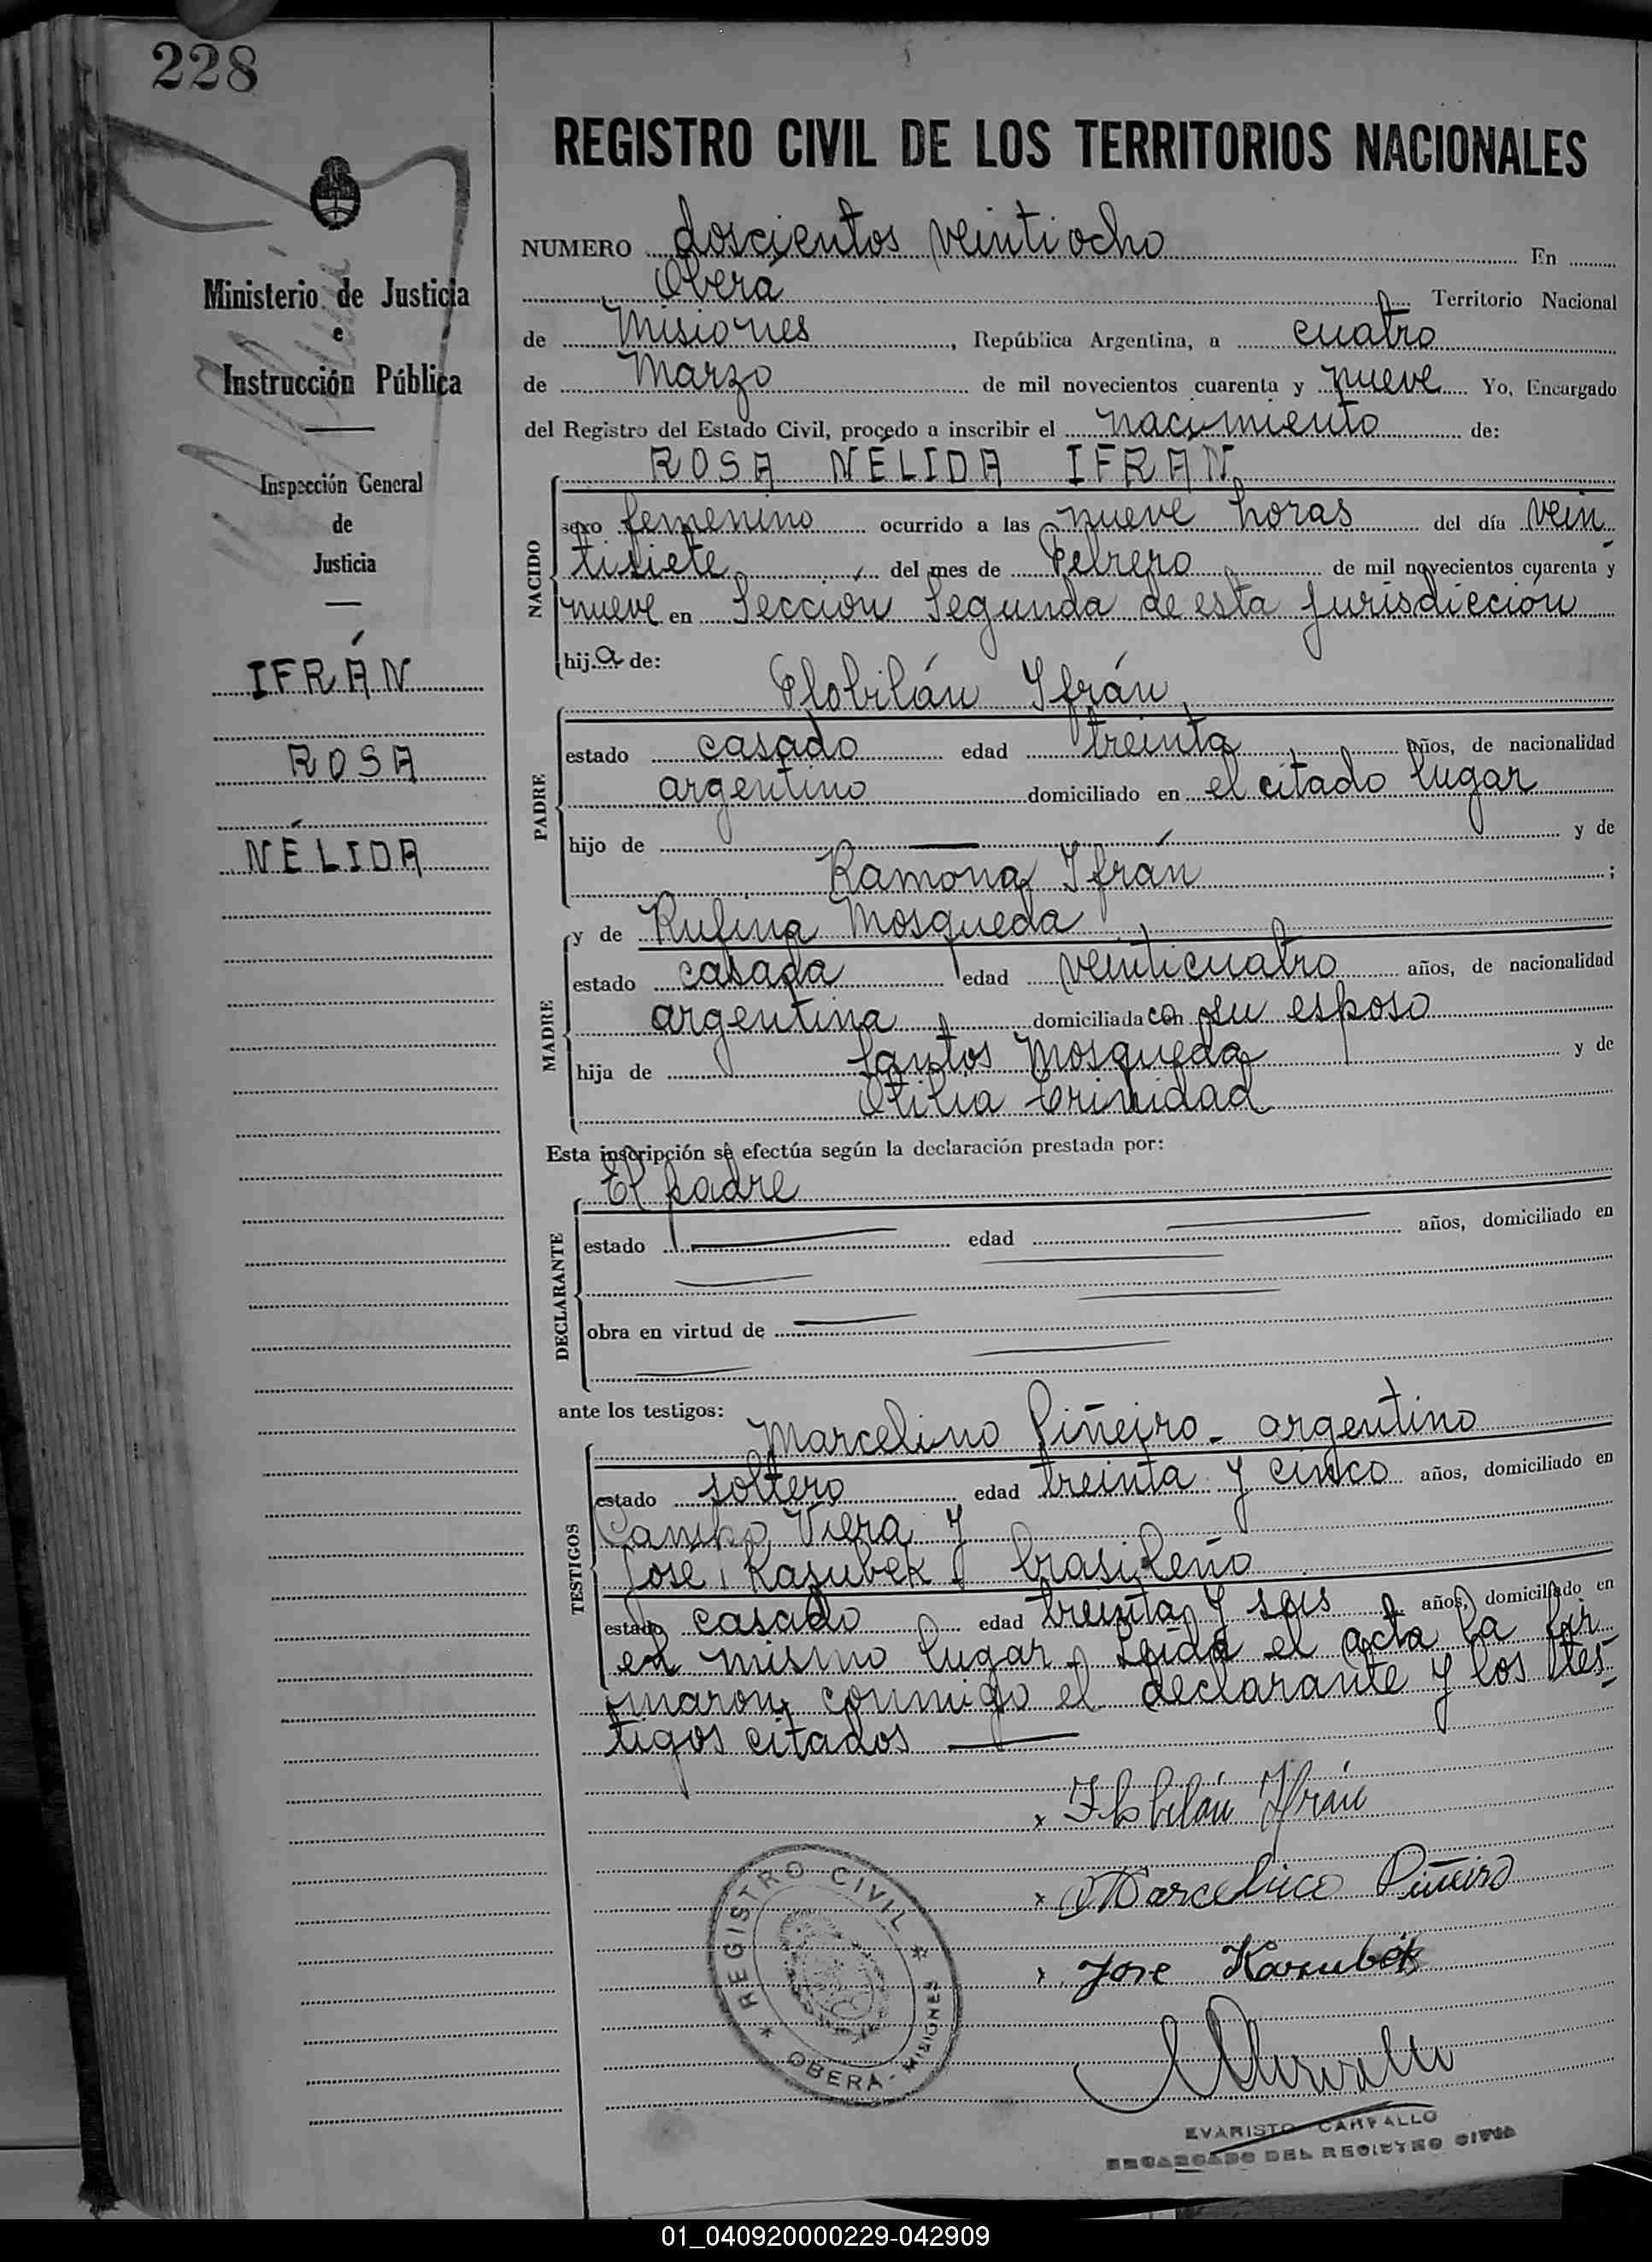 228
Ministerio de Justicia
e
Instrucción Pública
Inspección General
de
Justicia
IFRÁN
ROSA
NÉLIDA
REGISTRO CIVIL DE LOS TERRITORIOS NACIONALES
NUMERO doscientos veintiocho En
Oberá Territorio Nacional
de Misiones, República Argentina, a cuatro
de Marzo de mil novecientos cuarenta y nueve Yo, Encargado
del Registro del Estado Civil, procedo a inscribir el nacimiento de:
ROSA NÉLIDA IFRÁN
NACIDO
sexo femenino ocurrido a las nueve horas del día vein
tisiete del mes de Febrero de mil novecientos cuarenta y
nueve en Sección Segunda de esta jurisdicción
hija de:
Flobilán Ifrán
PADRE
estado casado edad treinta años, de nacionalidad
argentino domiciliado en el citado lugar
hijo de — y de
Ramona Ifrán;
MADRE
y de Rufina Mosqueda
estado casada edad veinticuatro años, de nacionalidad
argentina domiciliada con su esposo
hija de Santos Mosqueda y de
Otilia Trinidad
Esta inscripción se efectúa según la declaración prestada por:
DECLARANTE
El padre
estado edad años, domiciliado en
obra en virtud de
ante los testigos:
TESTIGOS
Marcelino Piñeiro - argentino
estado soltero edad treinta y cinco años, domiciliado en
Campo Viera y
José Kasubek - brasileño
estado casado edad treinta y seis años, domiciliado en
el mismo lugar. Leída el acta la fir
maron conmigo el declarante y los tes-
tigos citados —
x Flobilán Ifrán
x Marcelino Piñeiro
x Jose Kasubek
REGISTRO CIVIL
OBERÁ - MISIONES
EVARISTO CARVALLO
ENCARGADO DEL REGISTRO CIVIL
01_040920000229-042909